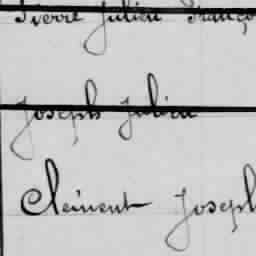 Pierre Julien Franço
Joseph Julien
Clément Joseph